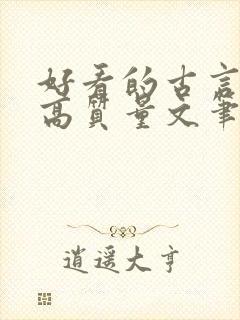 好看的古言
高质量文笔
逍遥大亨